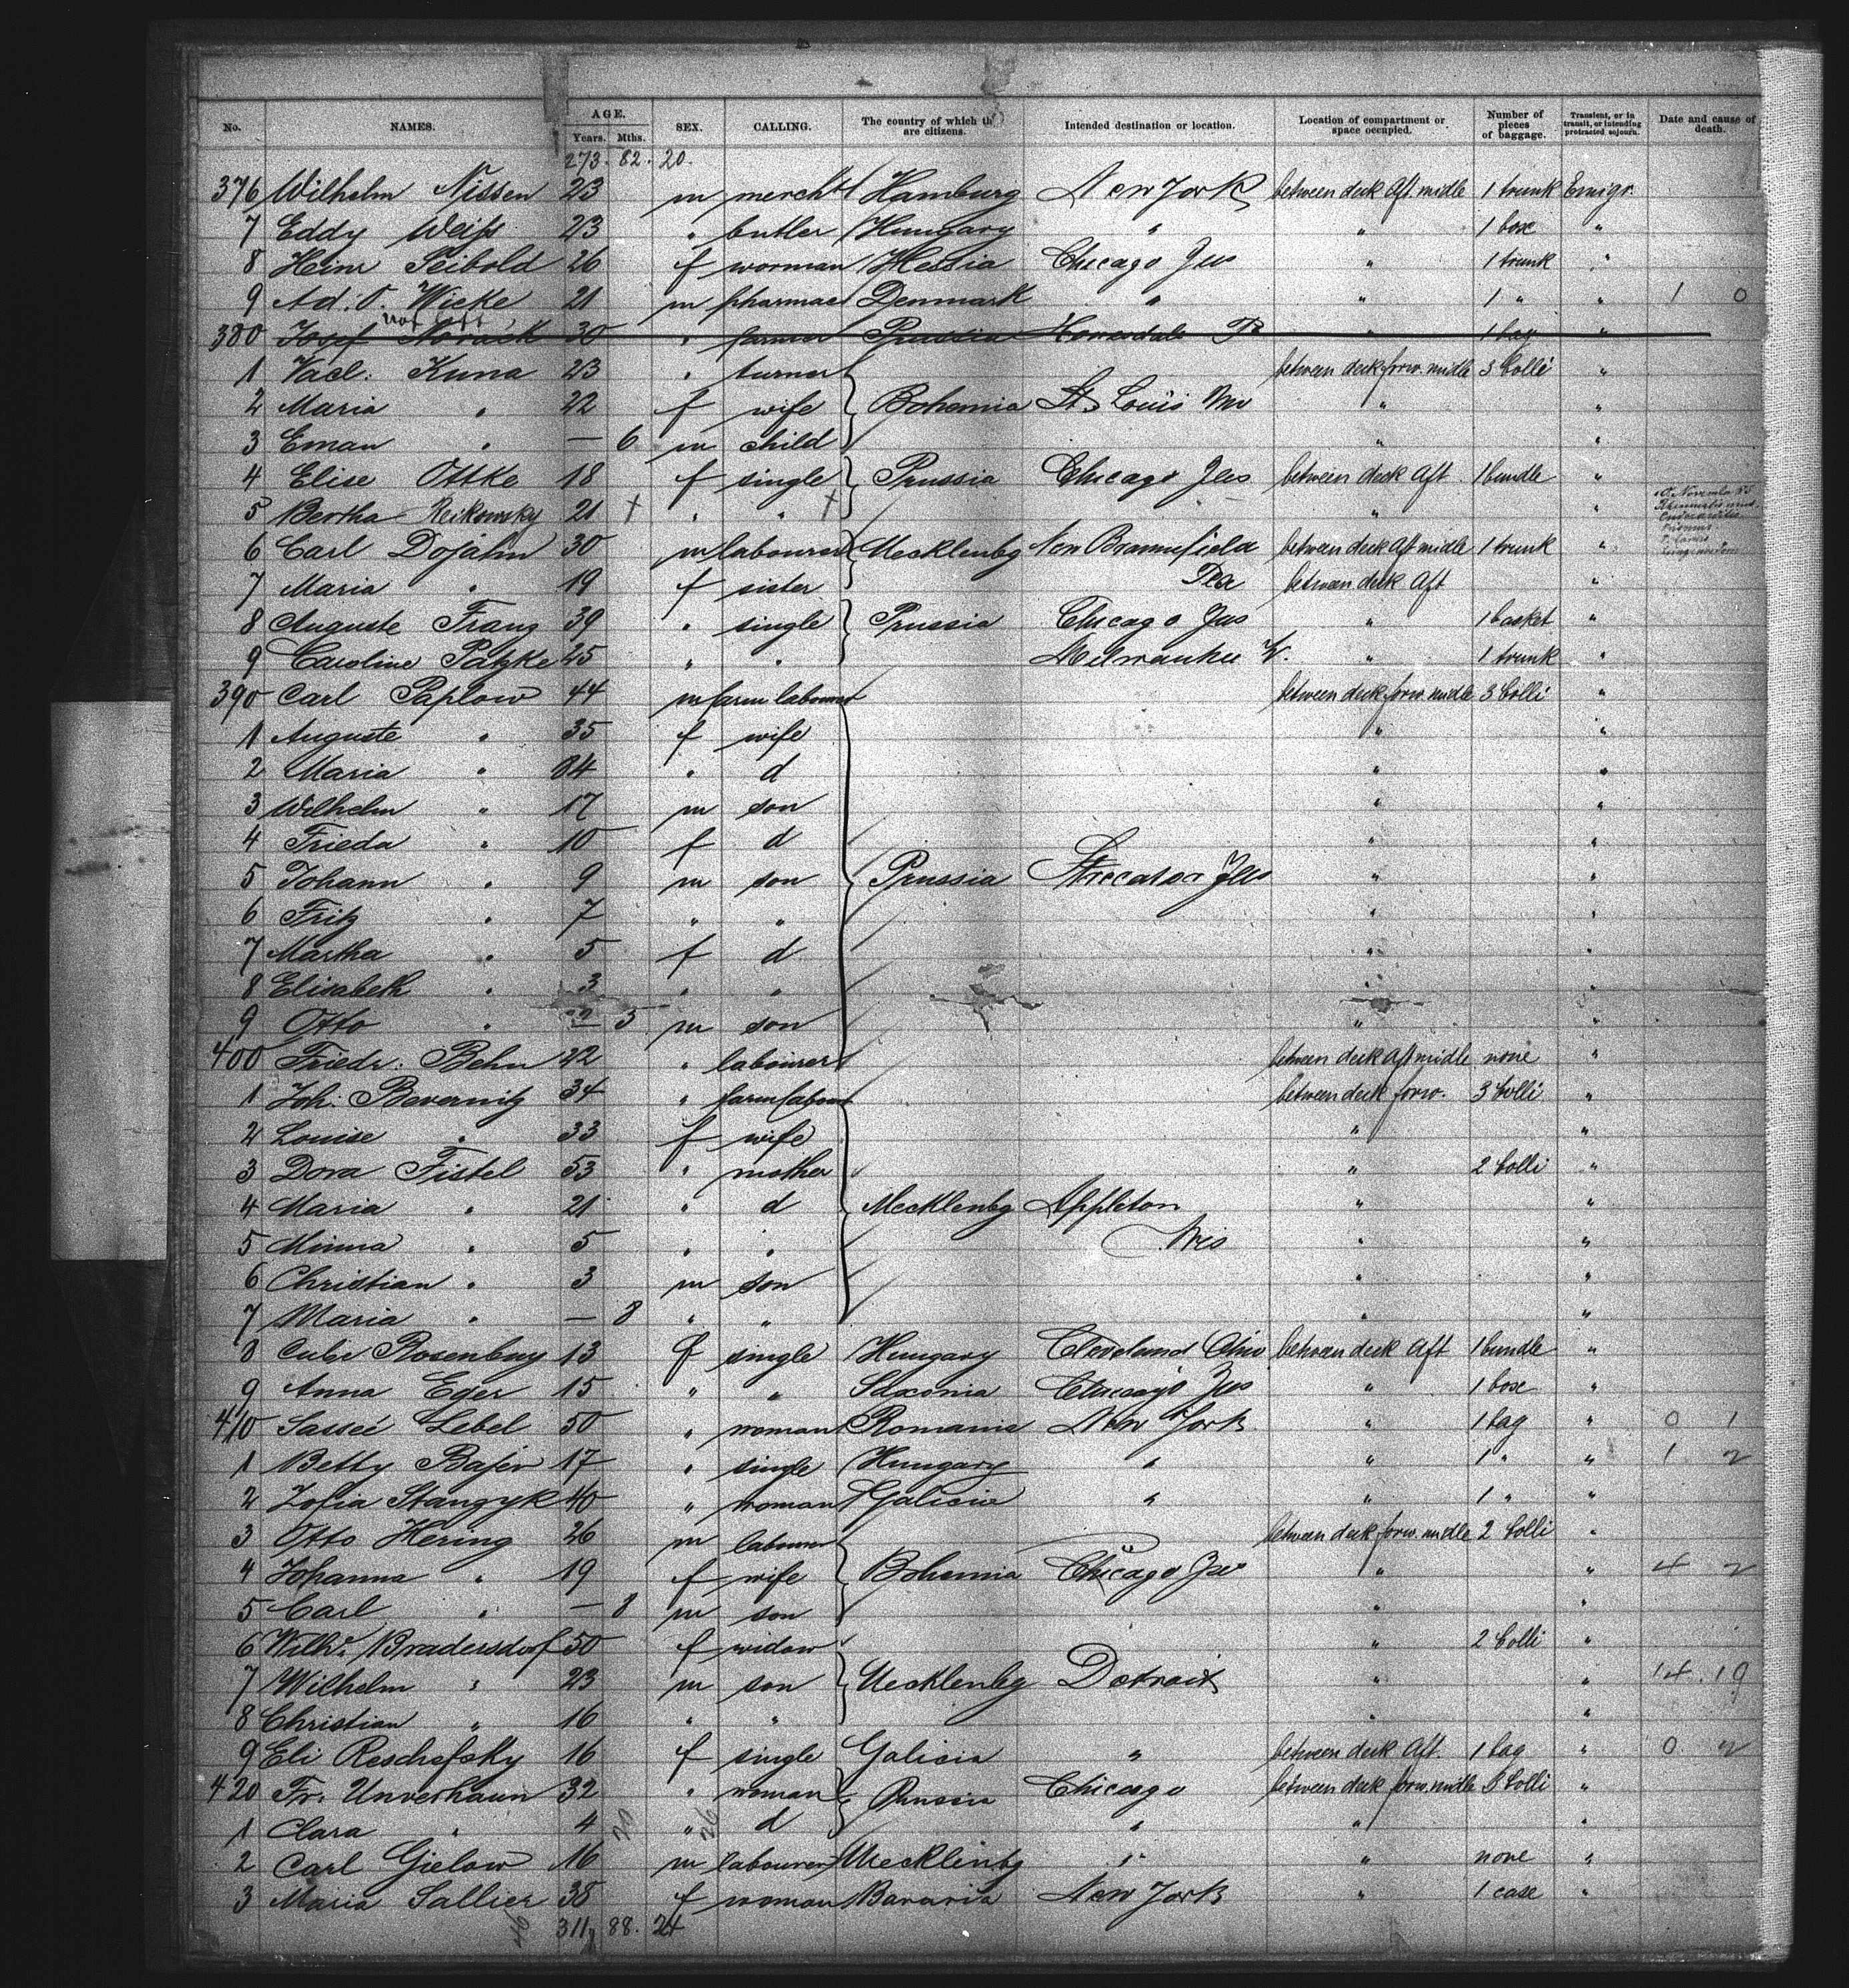 No. NAMES. AGE. Years. Mths. SEX. CALLING. The country of which th are citizens. Intended destination or location. Location of compartment or space occupied. Number of pieces of baggage. Transient, or in transit, or intending protracted sojourn. Date and cause of death.
273. 82. 20.
376 Wilhelm Nissen 23 m mercht Hamburg New York between deck aft. midle 1 trunk Emigr.
7 Eddy Weiss 23 " butler Hungary " " 1 box "
8 Heinr Seibold 26 f worman Hessia Chicago Ills " 1 trunk "
9 Ad. O. Wicke 21 m pharmac Denmark " " 1 " " 1 0
not
380 Josef Novack 30 " farmer Prussia Honesdale P " 1 bag "
1 Vacl. Kuna 23 " turner between deck forw. midle 3 Colli "
2 Maria " 22 f wife Bohemia St. Louis Mo " "
3 Eman " — 6 m child " "
4 Elise Ottke 18 f single Prussia Chicago Ills between deck aft 1 bundle "
5 Bertha Reikowsky 21 + " " + " "
6 Carl Dojahn 30 m labourer Mecklenbg New between deck aft midle 1 trunk "
7 Maria " 19 f sister between deck aft "
8 Auguste Franz 39 " single Prussia Chicago Ills " 1 basket "
9 Caroline Patzke 25 " " Milwaukee W. " 1 trunk "
390 Carl Paplow 44 m farm labourer between deck forw. midle 3 Colli "
1 Auguste " 35 f wife " "
2 Maria " " d " "
3 Wilhelm " 17 m son " "
4 Frieda " 10 f d " "
5 Johann " 9 m son Prussia Streator Ills " "
6 Fritz " 7 " " " "
7 Martha " 5 f d " "
8 Elisabeth " 3 " " " "
9 Otto " — 3 m son " "
400 Friedr. Behn 22 " labourer between deck aft midle none "
1 Joh. Bevernitz 34 " farm labour between deck forw. 3 Colli "
2 Louise " 33 f wife " "
3 Dora Fistel 53 " mother " 2 Colli "
4 Maria " 21 " d Mecklenbg Appleton " "
5 Minna " 5 " " Wis " "
6 Christian " 3 m son " "
7 Maria " — 8 " " " "
8 Rosenberg 13 f single Hungary Cleveland Ohio between deck aft 1 bundle "
9 Anna Eger 15 " " Saxonia Chicago Ills " 1 box "
410 Lebel 50 " woman Romania New York " 1 bag " 0 1
1 Betty Bajer 17 " single Hungary " " 1 " " 1 2
2 Zofia Stangyk 40 " woman Galicia " " 1 " "
3 Otto Hering 26 m labourer between deck forw. midle 2 Colli "
4 Johanna " 19 f wife Bohemia Chicago Ills " " 4 2
5 Carl " — 8 m son " "
6 Wilhe. Bradersdorf 50 f widow " 2 Colli "
7 Wilhelm " 23 m son Mecklenbg Detroit " " 14. 19
8 Christian " 16 " " " "
9 Eli Reschefsky 16 f single Galicia " between deck aft. 1 bag " 0 2
420 Fr. Unverhaun 32 " woman Prussia Chicago between deck forw. midle 3 Colli "
1 Clara " 4 " d " " "
2 Carl Gielow 16 m labourer Mecklenbg " " none "
3 Maria Sallier 38 f woman Bavaria New York " 1 case "
311 88. 24